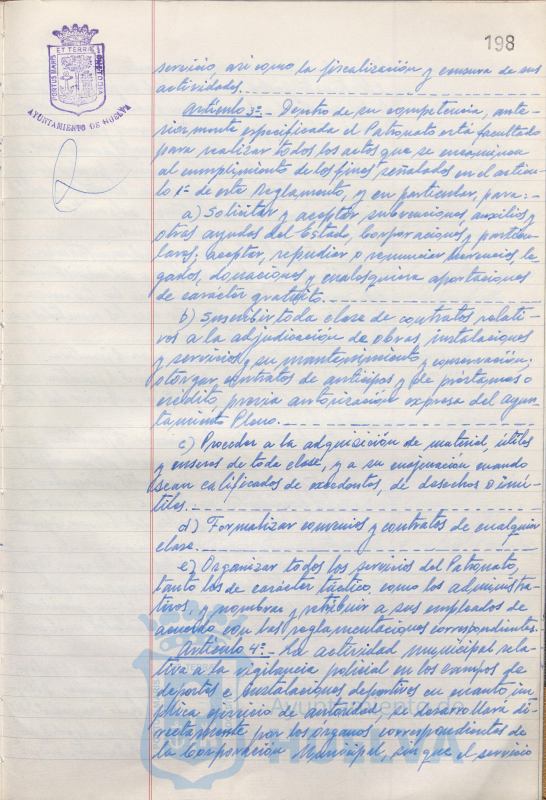 198
PORTUS MARIS ET TERRAE CUSTODIA
AYUNTAMIENTO DE HUELVA
servicio, así como la fiscalización y censura de sus
actividades.
Artículo 3º.- Dentro de su competencia, ante-
riormente especificada el Patronato está facultado
para realizar todos los actos que se encaminen
al cumplimiento de los fines señalados en el artícu-
lo 1º de este reglamento, y en particular, para:-
a) Solicitar y aceptar subvenciones auxilios y
otras ayudas del Estado, Corporaciones y particu-
lares; aceptar, repudiar o renunciar herencias, le-
gados, donaciones y cualesquiera aportaciones
de carácter gratuito.
b) Suscribir toda clase de contratos relati-
vos a la adjudicación de obras, instalaciones
y servicios y su mantenimiento y conservación;
otorgar contratos de anticipos y de préstamos o
crédito previa autorización expresa del Ayun-
tamiento Pleno.
c) Proceder a la adquisición de material, útiles
y enseres de toda clase, y a su enajenación cuando
sean calificados de excedentes, de desechos o inú-
tiles.
d) Formalizar convenios y contratos de cualquier
clase.
e) Organizar todos los servicios del Patronato,
tanto los de carácter táctico como los administra-
tivos, y nombrar y retribuir a sus empleados de
acuerdo con las reglamentaciones correspondientes.
Artículo 4º.- La actividad municipal rela-
tiva a la vigilancia policial en los campos de
deportes e instalaciones deportivas en cuanto im-
plica ejercicio de autoridad, se desarrollará di-
rectamente por los órganos correspondientes de
la Corporación Municipal, sin que el servicio
Ayuntamiento de
HUELVA